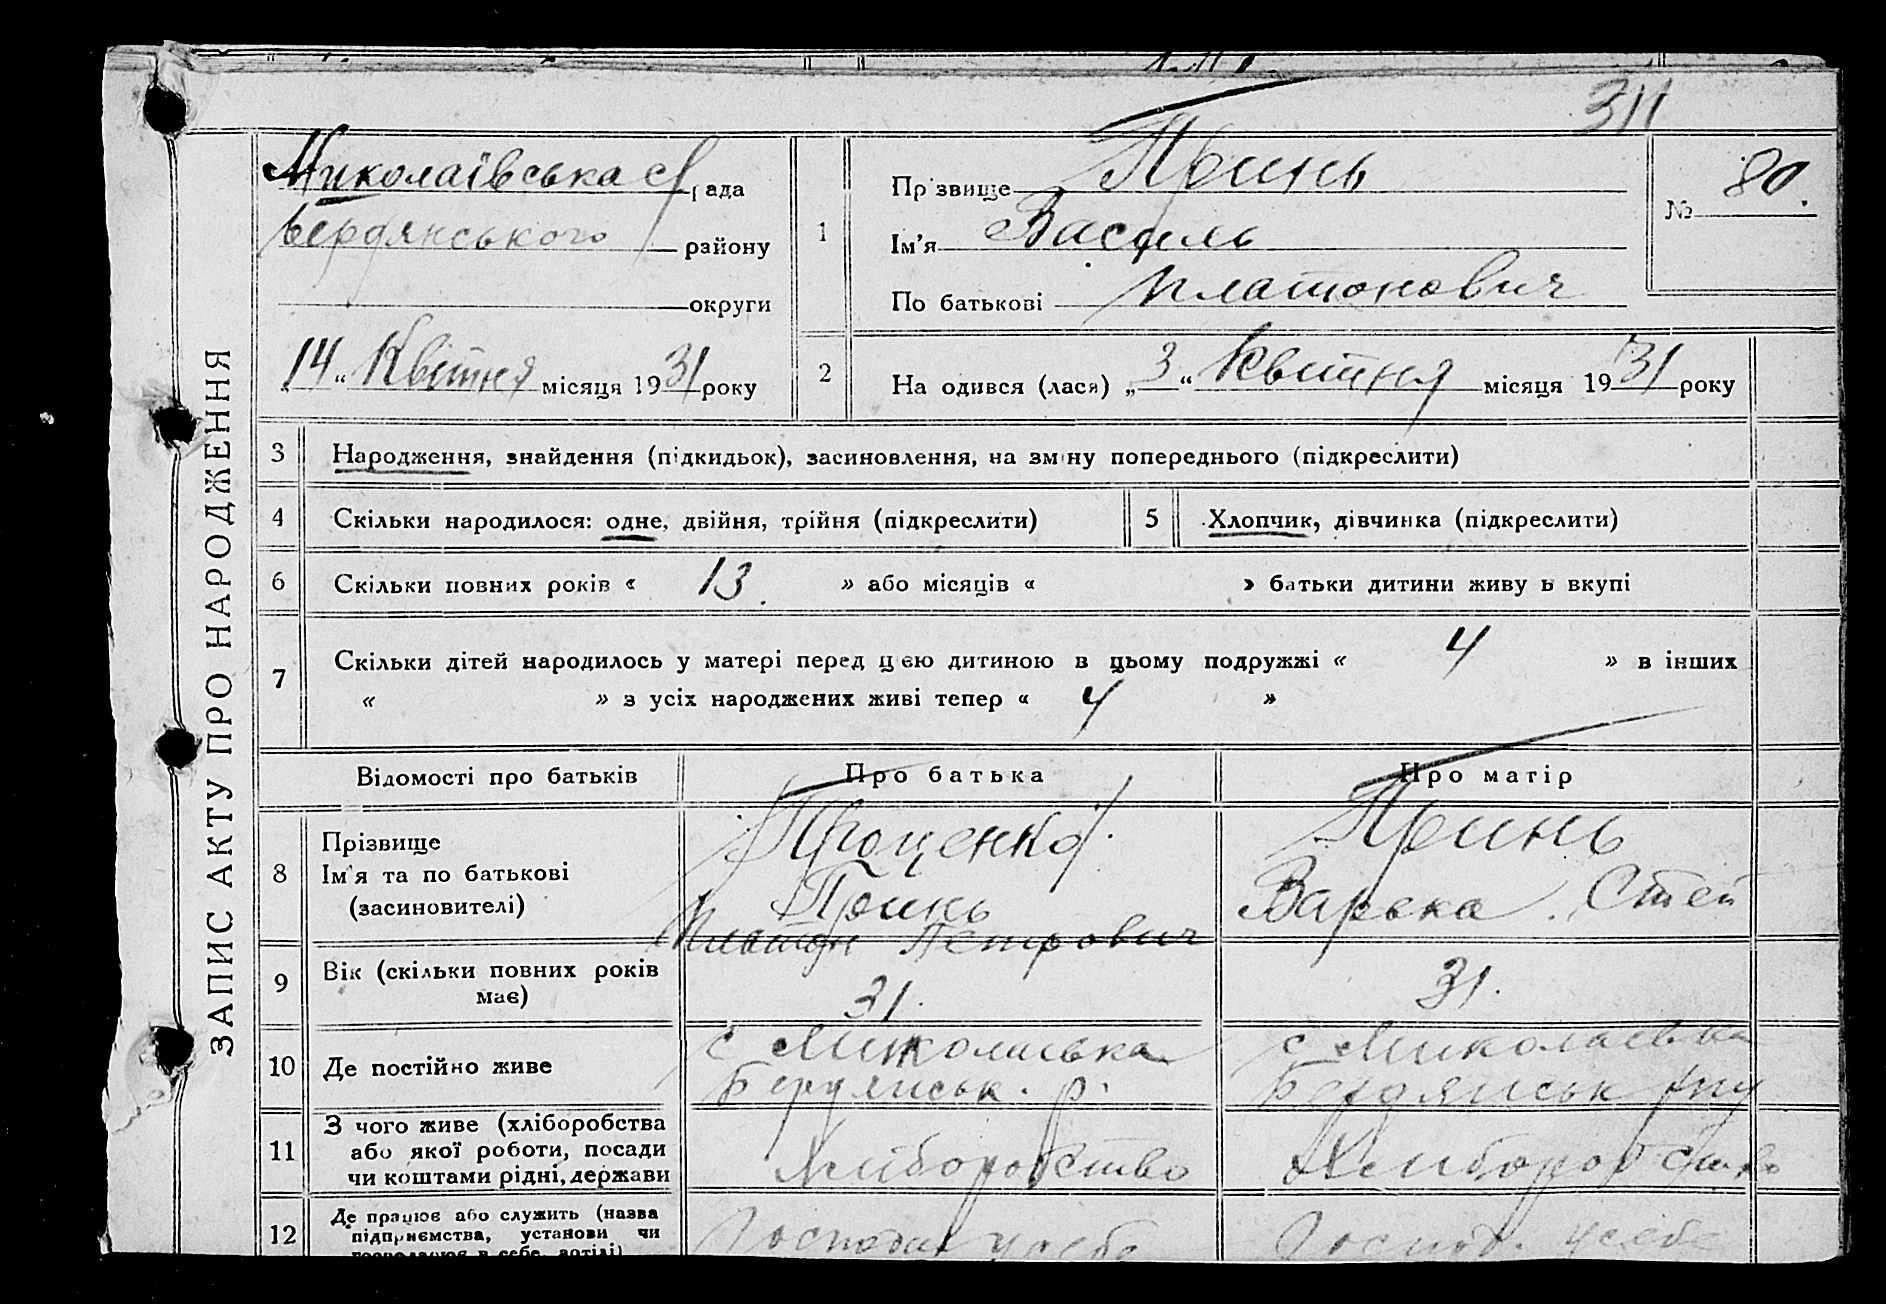 311
Миколаївська с/рада
Бердянського району
округи
14 „ Квітня місяця 1931 року
1
Прізвище Принь
Ім'я Василь
По батькові Платонович
№ 80.
2
На одився (лася) „ 3 “ Квитня місяця 1931 року
ЗАПИС АКТУ ПРО НАРОДЖЕННЯ
3 Народження, знайдення (підкидьок), засиновлення, на зміну попереднього (підкреслити)
4 Скільки народилося: одне, двійня, трійня (підкреслити)
5 Хлопчик, дівчинка (підкреслити)
6 Скільки повних років « 13. » або місяців « » батьки дитини живуть вкупі
7 Скільки дітей народилось у матері перед цією дитиною в цьому подружжі « 4 » в інших
« » з усіх народжених живі тепер « 4 »
Відомості про батьків
Про батька
Про матір
8 Прізвище
Ім'я та по батькові
(засиновителі)
Проценко
Принь
Платон Петрович
Принь
Варька. Степ
9 Вік (скільки повних років
має)
31.
31.
10 Де постійно живе
с Миколаівка
Бердянськ. р.
с Миколаевка
Бердянськ
11 З чого живе (хліборобства
або якої роботи, посади
чи коштами рідні, держави
Хліборобство
Хлиборобство
12 Де працює або служить (назва
підприємства, установи чи
господарює в себе, артілі)
Господар у себе
Господ. у себе